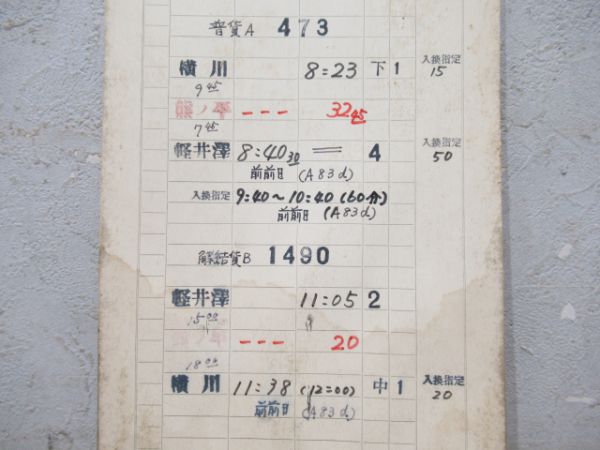 普貨A 473
横川 8:23 下1 入換指定 15
9 45
熊ノ平 --- 32 45
7 45
軽井澤 8:40 30 = 4 入換指定 50
前前日 (A83d)
入換指定 9:40~10:40 (60分)
前前日 (A83d)
解結貨B 1490
軽井澤 11:05 2
15 00
熊ノ平 --- 20
18 00
横川 11:38 (12:00) 中1 入換指定 20
前前日 (A83d)